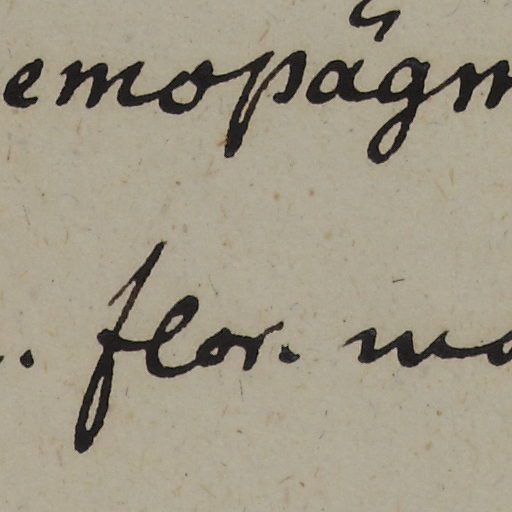 emopägm
. flor. mo